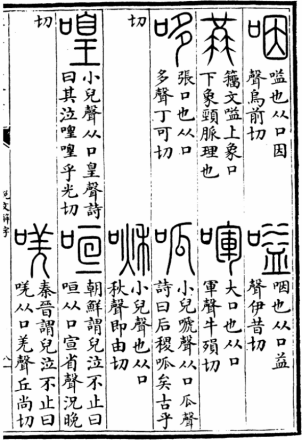 咽 嗌也从口因
聲烏前切
嗌 咽也从口益
聲伊昔切
籒文嗌上象口
下象頸脈理也
喗 大口也从口
軍聲牛殞切
哆 張口也从口
多聲丁可切
呱 小兒嗁聲从口瓜聲
詩曰后稷呱矣古乎
切
啾 小兒聲也从口
秋聲即由切
喤 小兒聲从口皇聲詩
曰其泣喤喤乎光切
咺 朝鮮謂兒泣不止曰
咺从口宣省聲況晚
切
唴 秦晉謂兒泣不止曰
唴从口羌聲丘尚切
文解字